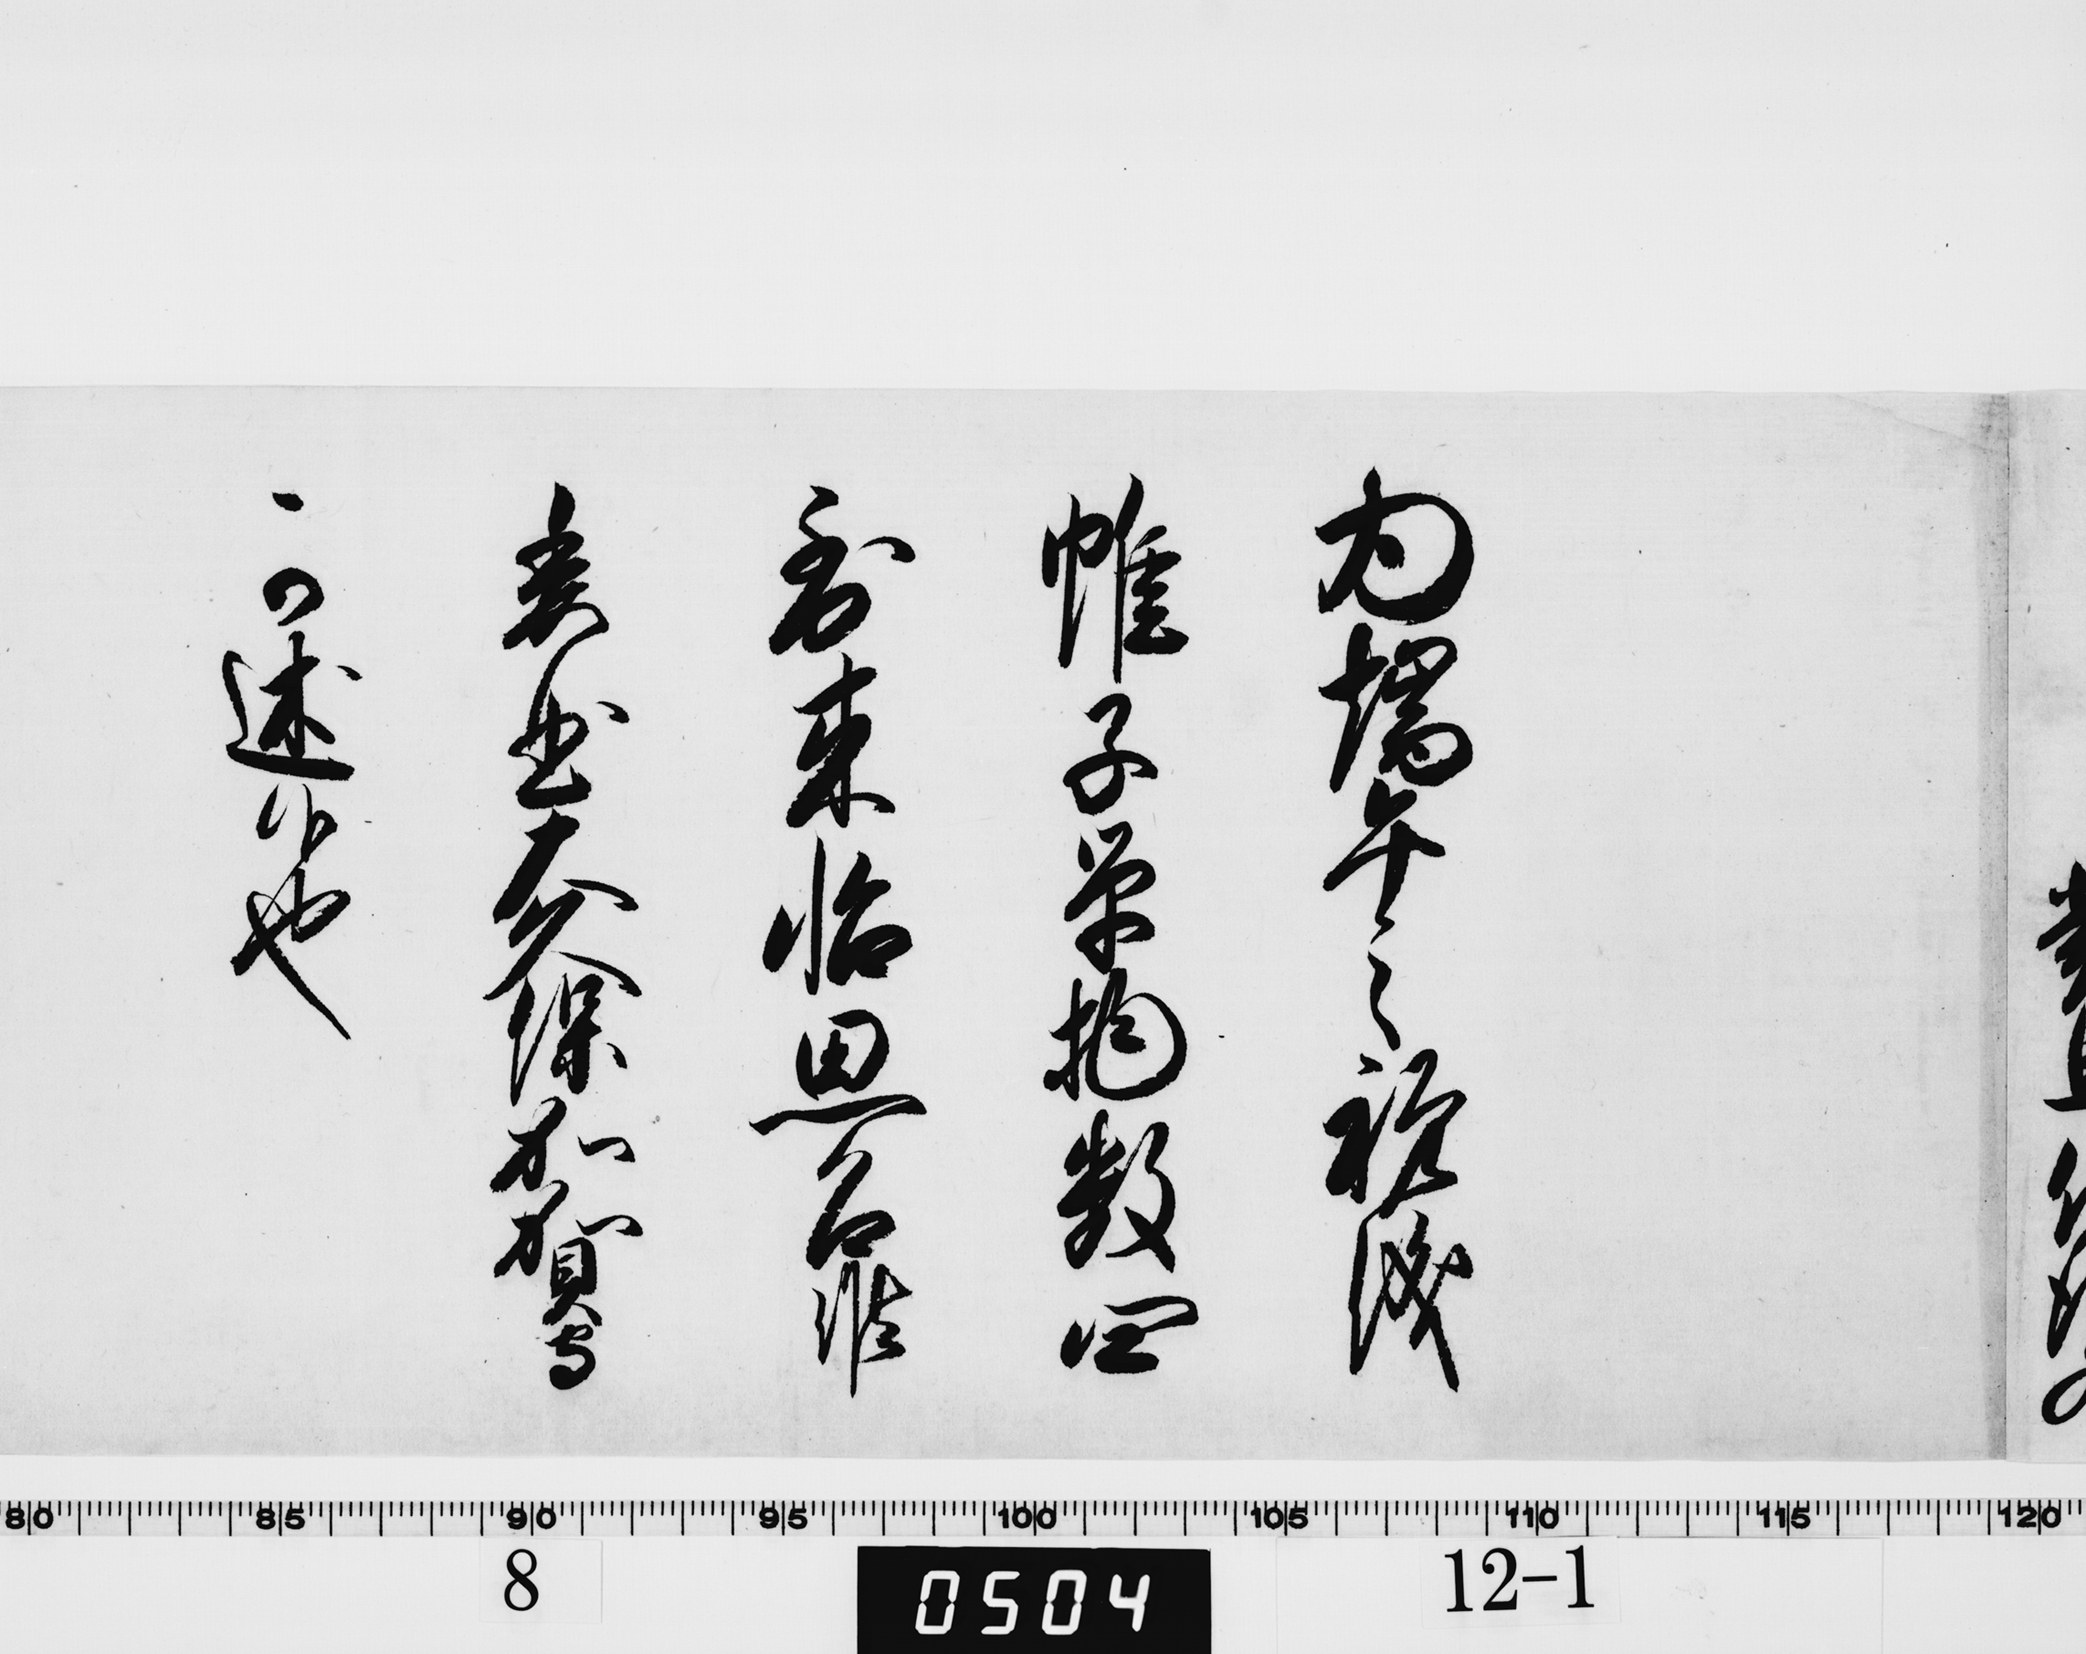 為端午之祝儀
帷子単物数四
到来怡思召候
委曲大久保加賀守
可述候也
80 85 90 95 100 105 110 115 120
8 0504 12-1